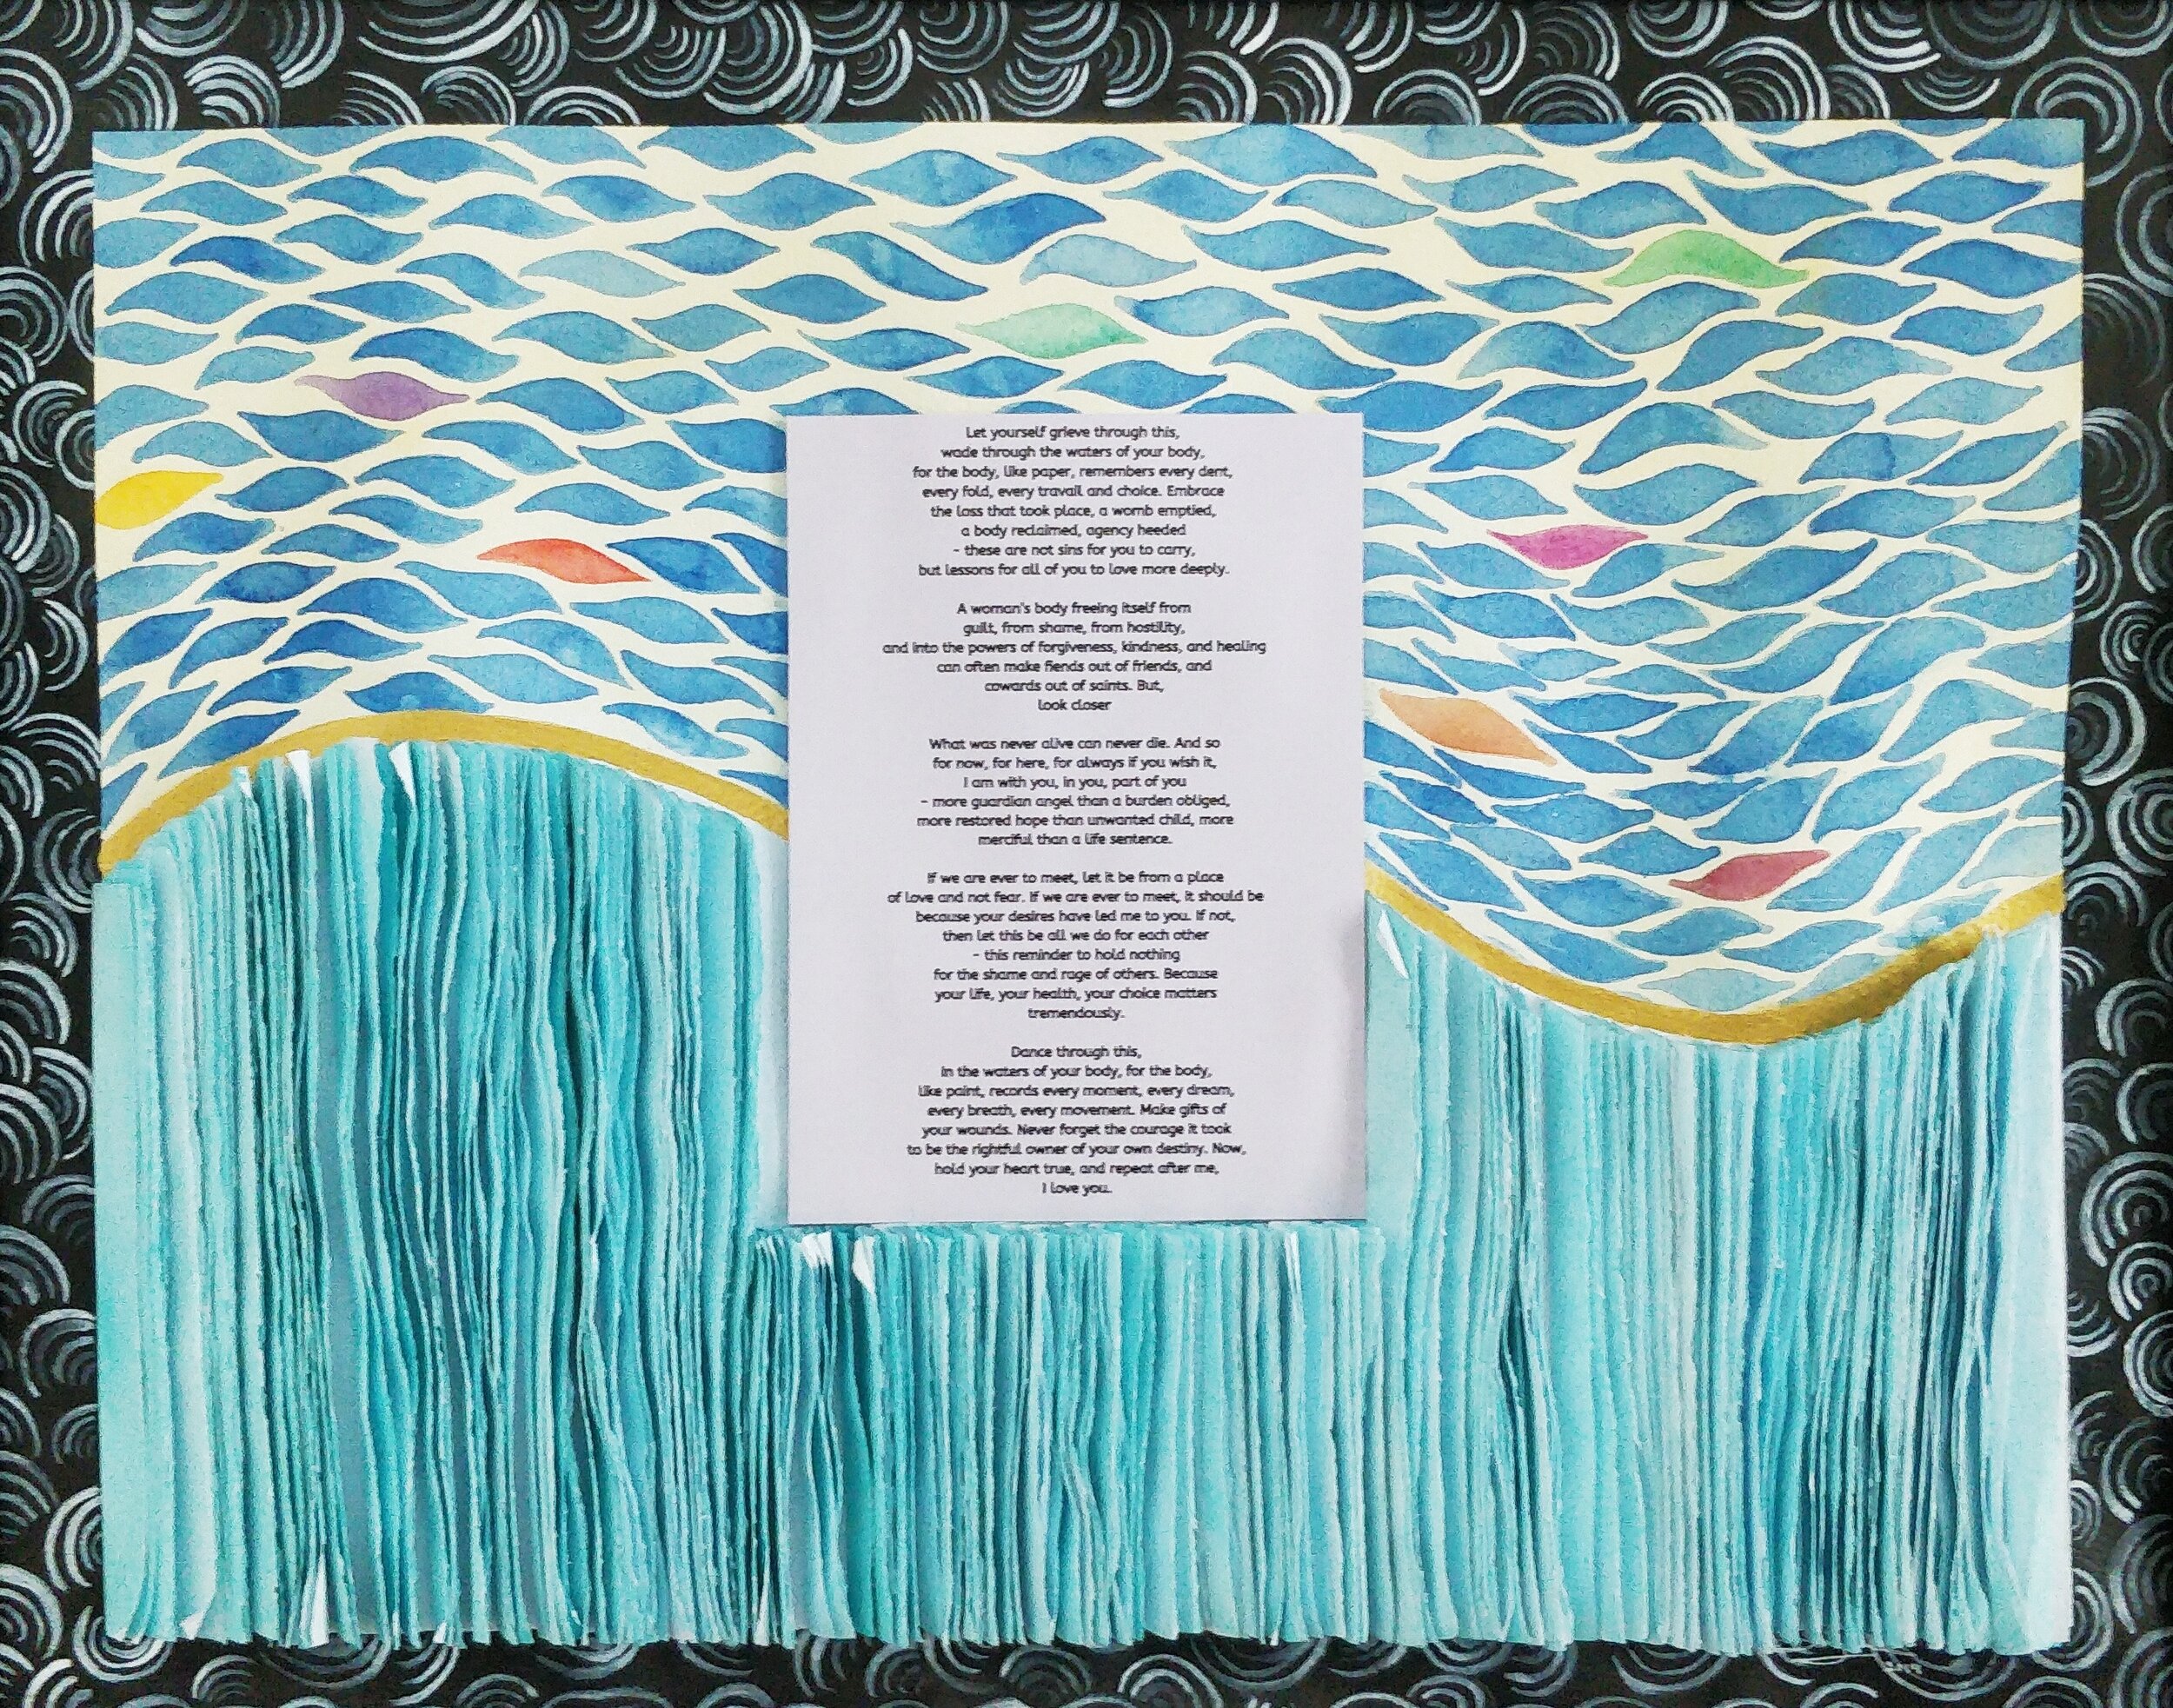 Let yourself grieve through this,
wade through the waters of your body,
for the body, like paper, remembers every dent,
every fold, every travail and choice. Embrace
the loss that took place, a womb emptied,
a body reclaimed, agency heeded
- these are not sins for you to carry,
but lessons for all of you to love more deeply.
A woman's body freeing itself from
guilt, from shame, from hostility,
and into the powers of forgiveness, kindness, and healing
can often make fiends out of friends, and
cowards out of saints. But,
look closer
What was never alive can never die. And so
for now, for here, for always if you wish it,
I am with you, in you, part of you
- more guardian angel than a burden obliged,
more restored hope than unwanted child, more
merciful than a life sentence.
If we are ever to meet, let it be from a place
of love and not fear. If we are ever to meet, it should be
because your desires have led me to you. If not,
then let this be all we do for each other
- this reminder to hold nothing
for the shame and rage of others. Because
your life, your health, your choice matters
tremendously.
Dance through this,
In the waters of your body, for the body,
like paint, records every moment, every dream,
every breath, every movement. Make gifts of
your wounds. Never forget the courage it took
to be the rightful owner of your own destiny. Now,
hold your heart true, and repeat after me,
I love you.